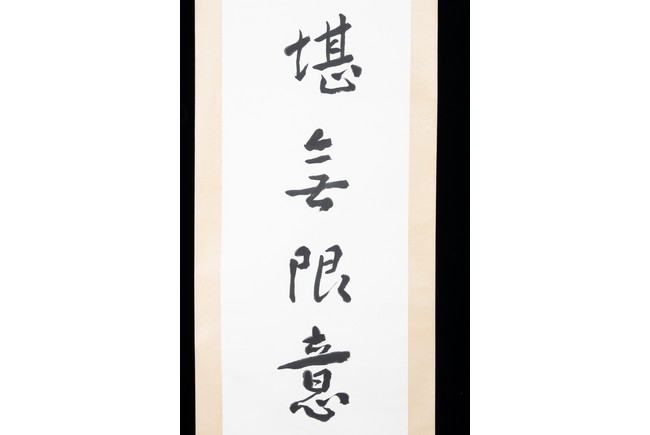 堪無限意